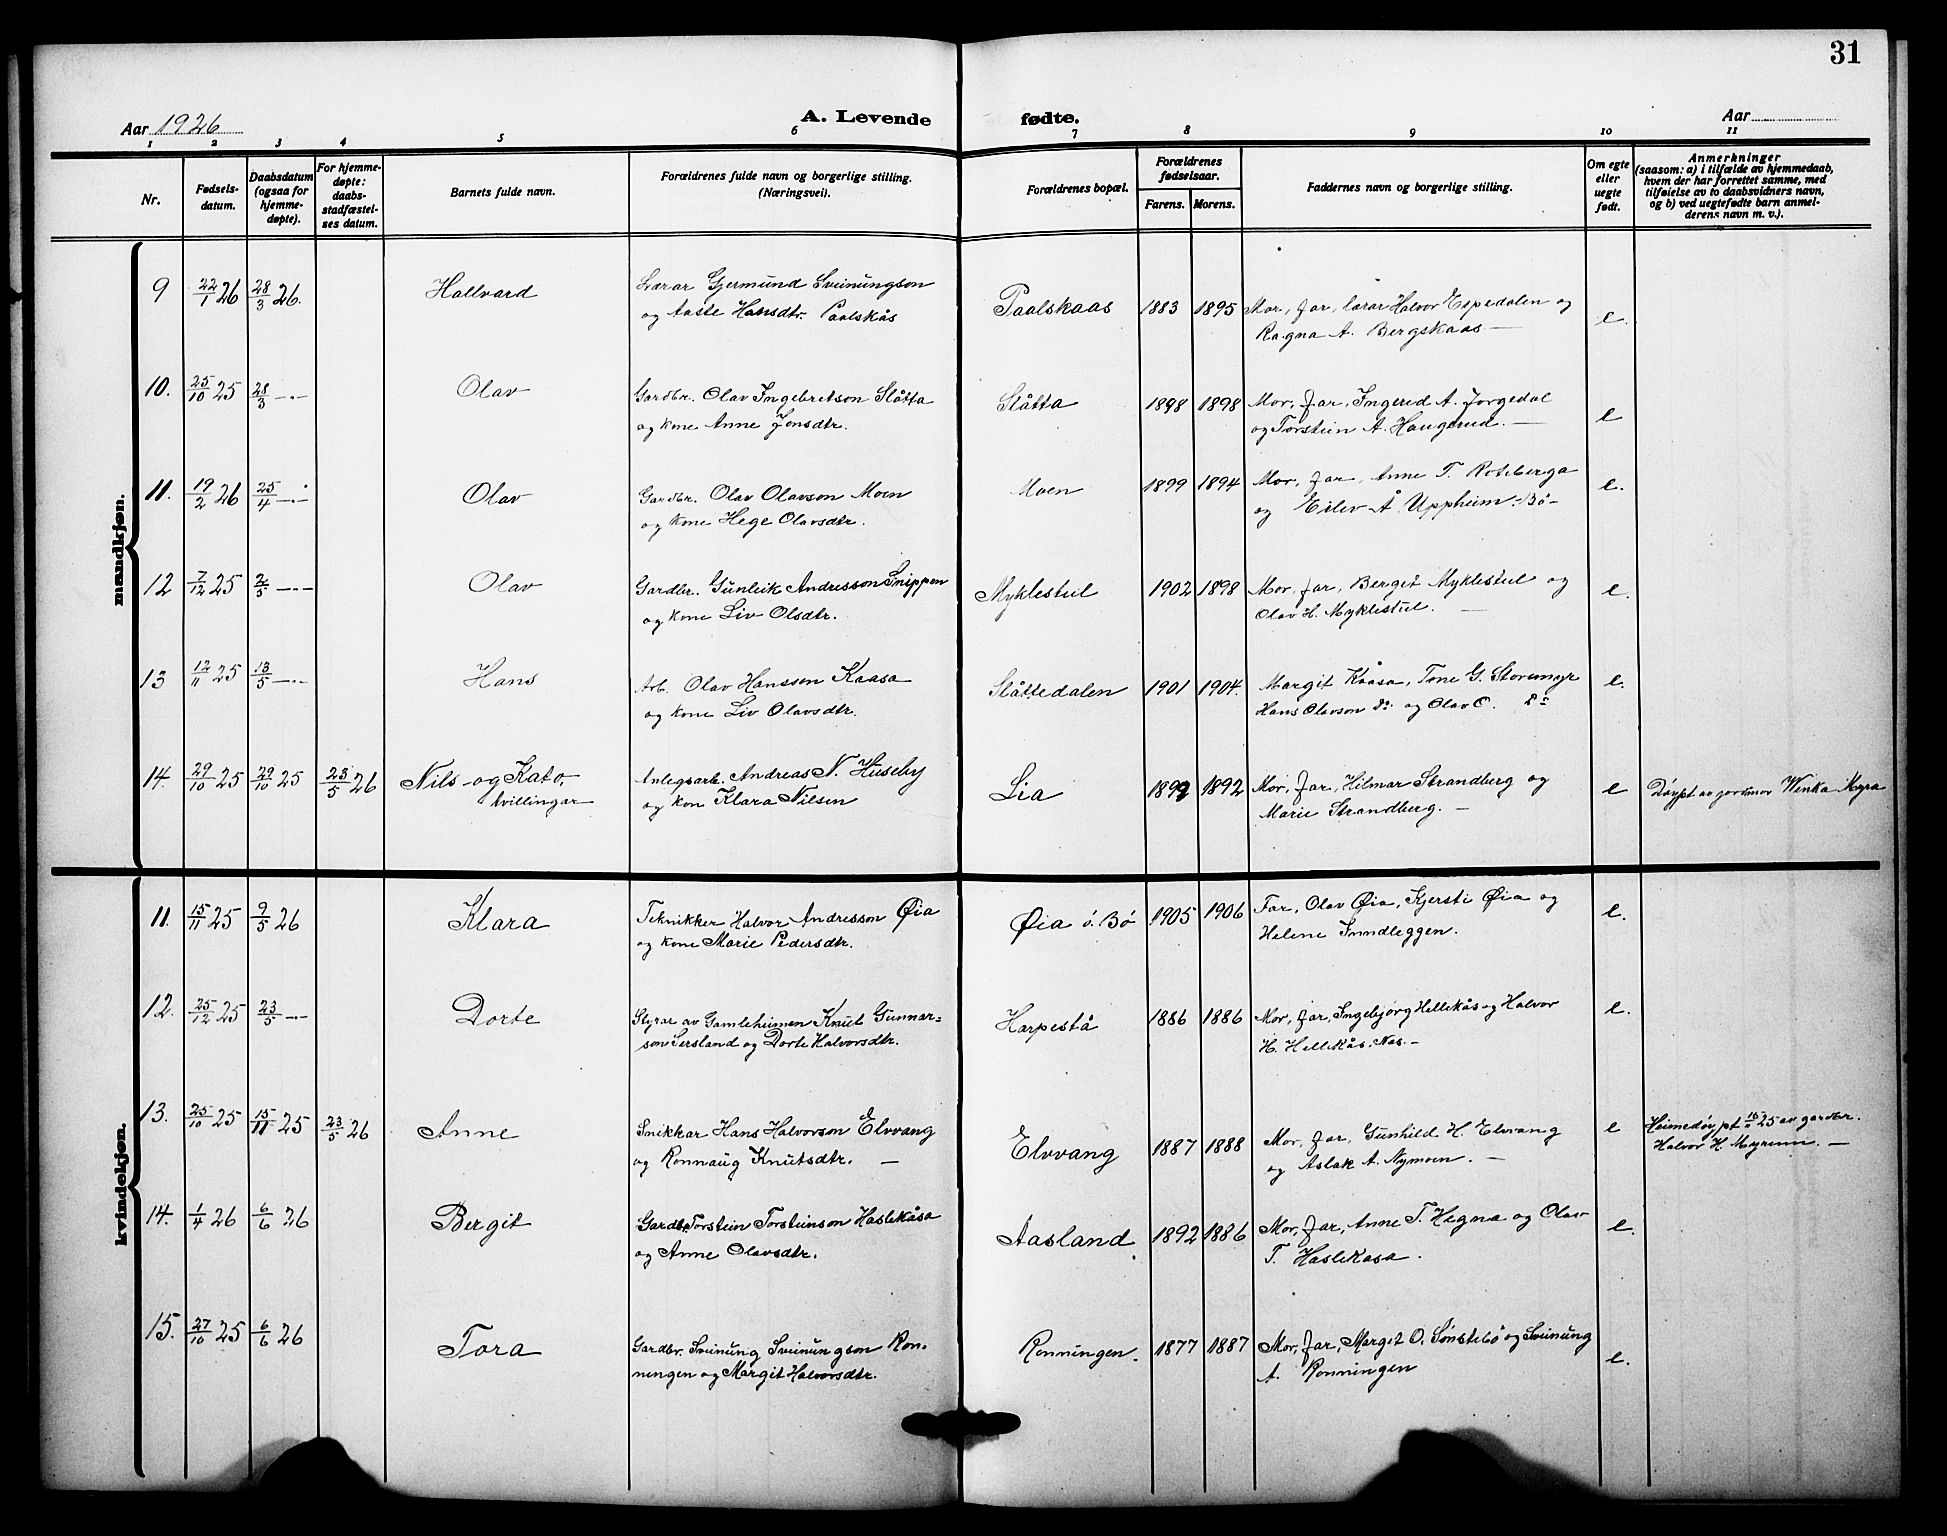 31
Aar 1926
A. Levende fødte.
Aar
1 2 3 4 5 6 7 8 9 10 11
Nr.
Fødsels-
datum.
Daabsdatum
(ogsaa for
hjemme-
døpte).
For hjemme-
døpte:
daabs-
stadfæstel-
ses datum.
Barnets fulde navn.
Forældrenes fulde navn og borgerlige stilling.
(Næringsvei).
Forældrenes bopæl.
Forældrenes
fødselsaar.
Farens. Morens.
Faddernes navn og borgerlige stilling.
Om egte
eller
uegte
født.
Anmerkninger
(saasom: a) i tilfælde av hjemmedaab,
hvem der har forrettet samme, med
tilføielse av to daabsvidners navn,
og b) ved uegtefødte barn anmel-
derens navn m. v.).
mandkjøn.
9 22/1 26 28/3 26. Hallvard Lærar Gjermund Sveinungson Paalskaas 1883 1895 Mor, far, lærar Halvor Espedalen og e.
og Aaste Hansdtr. Paalskås Ragna A. Bergskaas —
10. 25/10 25 28/3 —"— Olav Gardbr. Olav Ingebretson Slåtta Slåtta 1898 1898 Mor, far, Ingerid A. Jorgedal e
og kone Anne Jonsdtr. og Torstein A. Haugerud. —
11. 19/2 26 25/4 —"— Olav Gardbr. Olav Olavson Moen Moen 1899 1894 Mor, far, Anne T. Roteberga e.
og kone Hege Olavsdtr. og Eilev Å Uppheim - Bø -
12 7/12 25 2/5 —"— Olav Gardbr. Gunleik Andresson Snippen Myklestul 1902 1898 Mor, far, Berget Myklestul og e.
og kone Liv Olsdtr. Olav H. Myklestul. —
13 12/11 25 13/5 —"— Hans Arb. Olav Hansson Kaasa Slåttedalen 1901 1904. Margit Kåasa, Tone G. Storemyr e.
og kone Liv Olavsdtr. Hans Olavson do. og Olav O. do
14. 29/10 25 29/10 25 23/5 26 Nils og Kato, Anlegsarb. Andreas N. Huseby Lia 1892 Mor, far, Hilmar Strandberg og e Døypt av jordmor Wenka Myra
tvillingar og kon Klara Nilsen Marie Strandberg. —
kvindekjøn.
11. 15/11 25 9/5 26 Klara Teknikker Halvor Andresson Øia Øia i Bø 1905 1906 Far, Olav Øia, Kjersti Øia og e.
og kone Marie Pedersdtr. Helene Inndleggen.
12. 25/12 25 23/5 —"— Dorte Styrar av Gamleheimen Knut Gunnar= Harpestå 1886 1886 Mor, far, Ingebjørg Hellekås og Halvor e.
son Sersland og Dorte Halvorsdtr. H. Hellekås. Nes. -
13. 25/10 25 15/11 25 23/5 26 Anne Snikkar Hans Halvorson Elvvang Elvvang 1887 1888 Mor, far, Gunhild H. Elvvang e Heimedøypt 25 av gardbr.
og Ronnaug Knutsdtr. — og Aslak A. Nymoen. — Halvor H. Myrum. —
14. 1/4 26 6/6 26 Bergit Gardbr. Torstein Torsteinson Haslekåsa Aasland 1892 1886 Mor, far, Anne T. Hegna og Olav e.
og Anne Olavsdtr. T. Haslekasa.
15. 27/10 25 6/6 26 Tora Gardbr. Sveinung Sveinungson Ron- Ronningen. 1877 1887 Mor, far, Marget O. Sønstebø og Sveinung e.
ningen og Margit Halvorsdtr. A. Ronningen